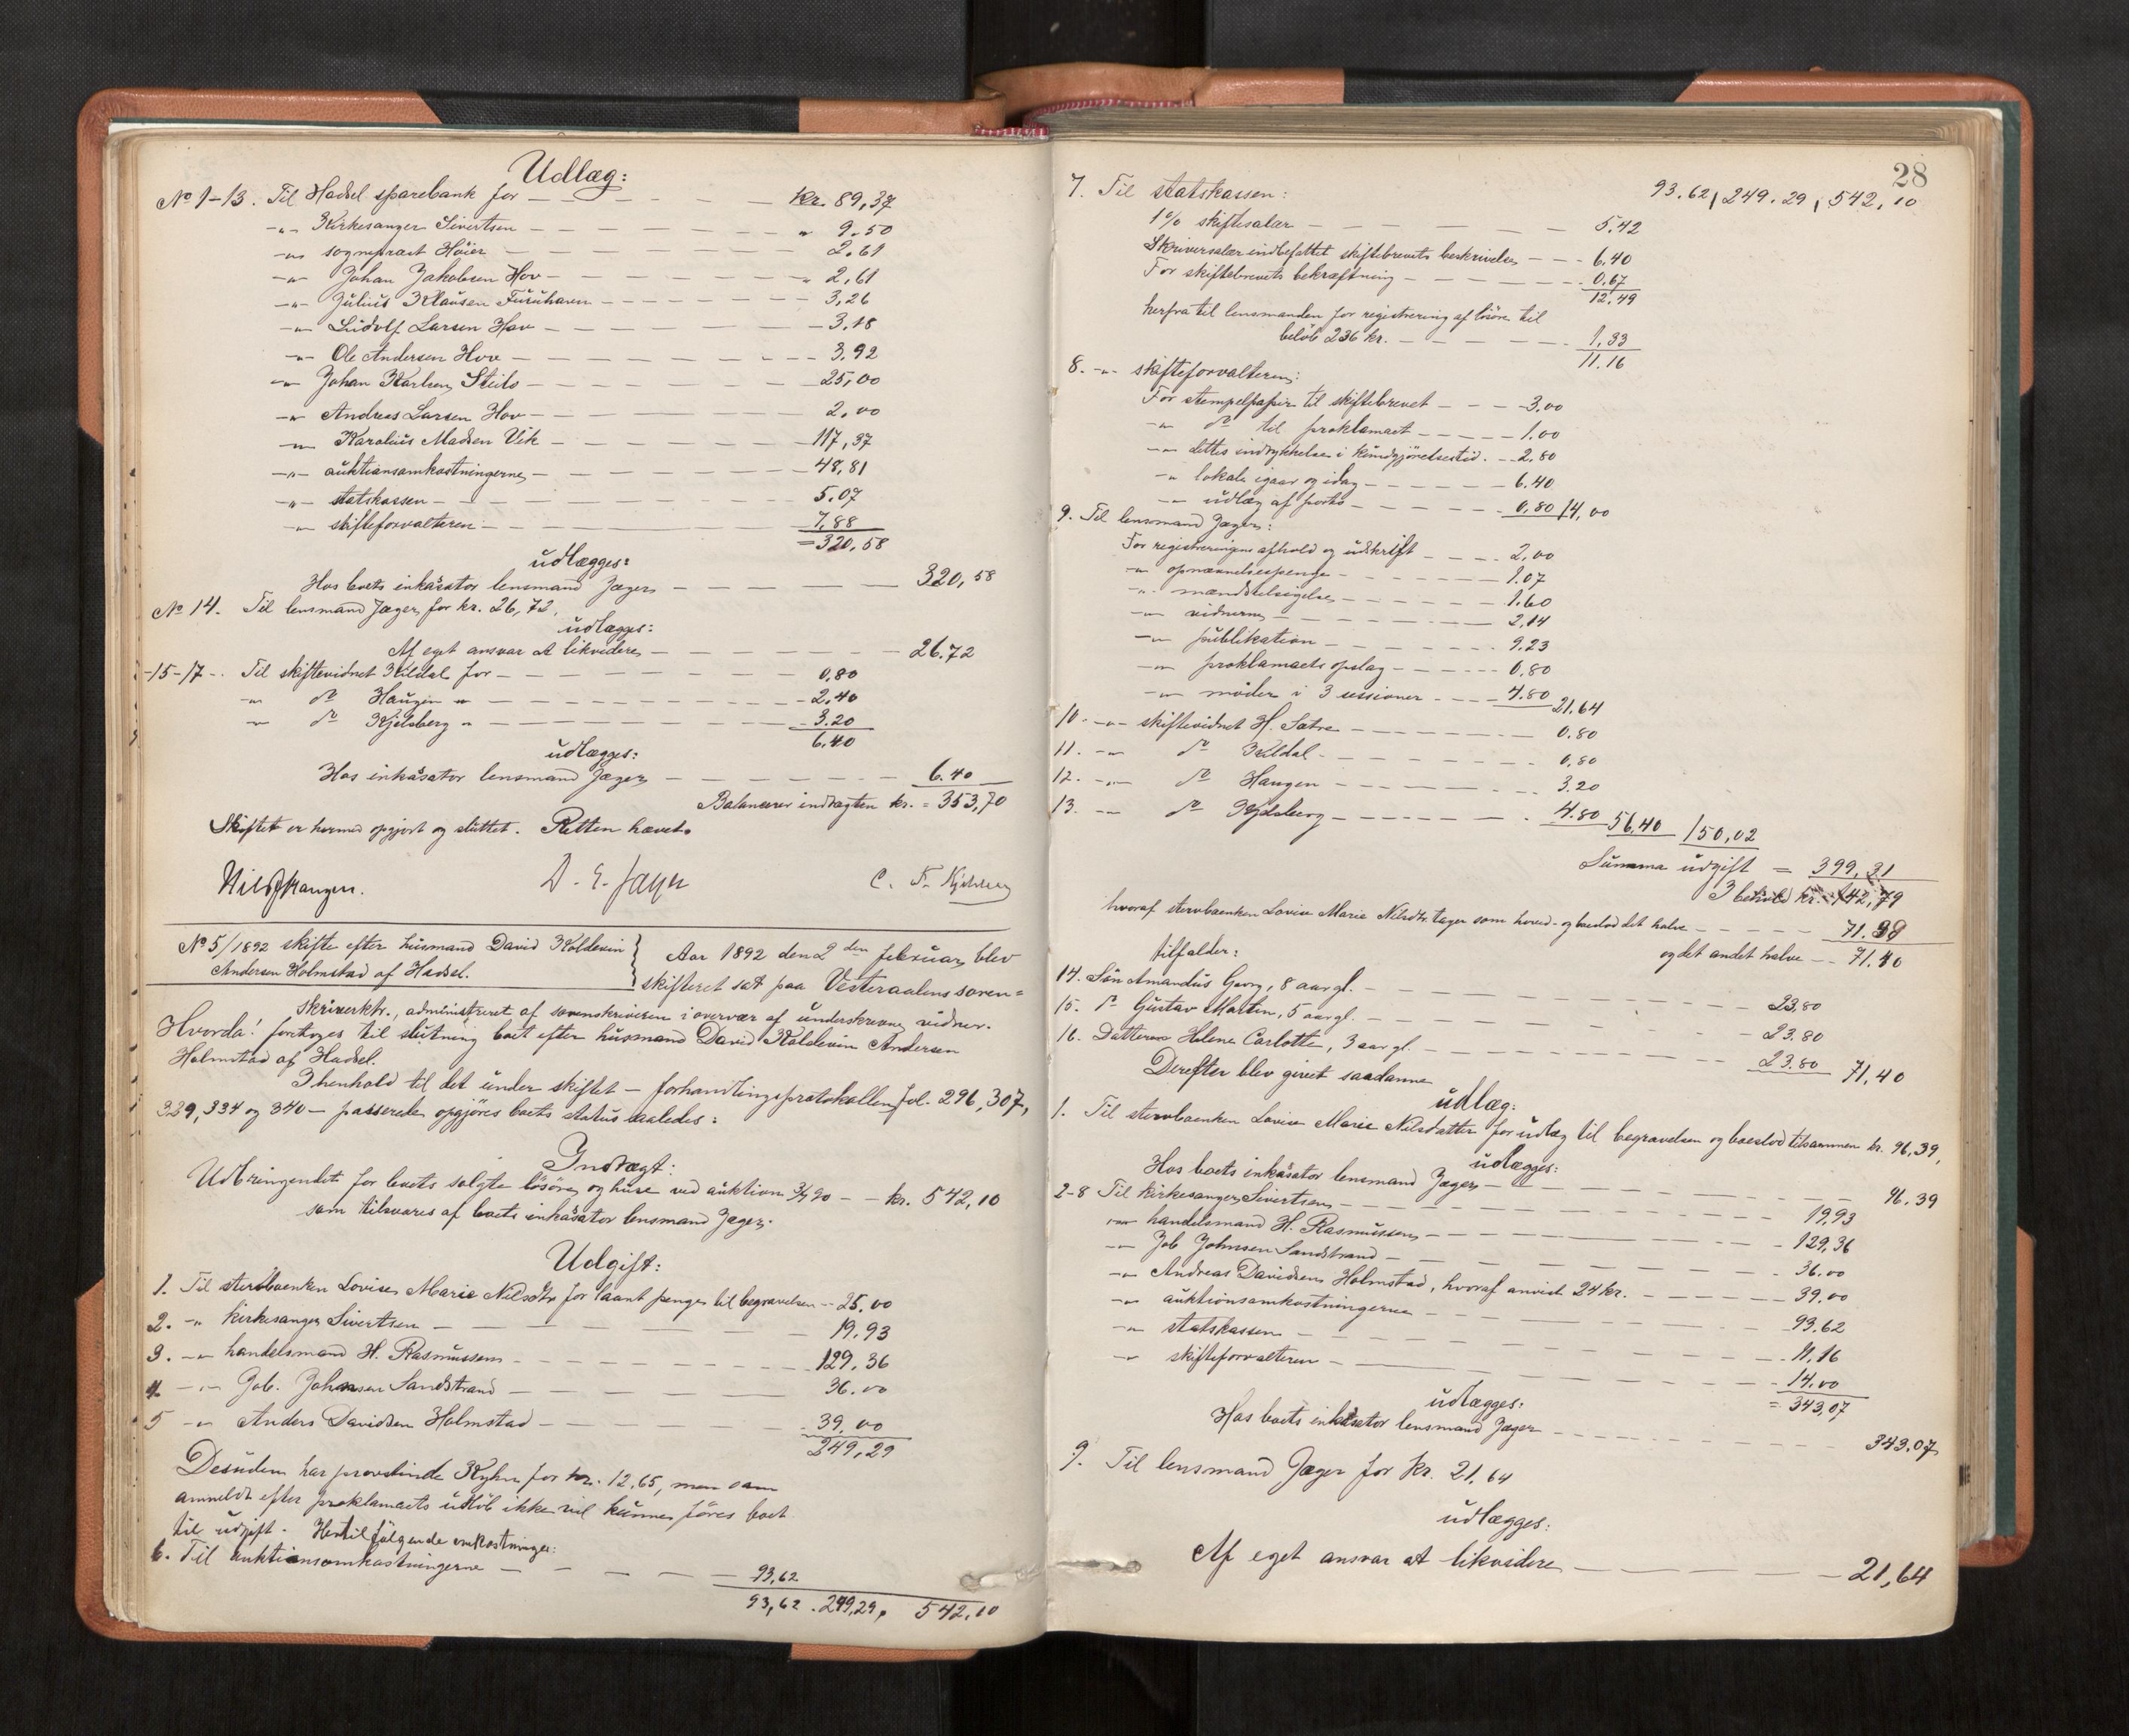 Udlæg:
No 1-13. Til Hadsel sparebank for — kr. 89,37
-"- Kirkesanger Sivertsen — " 9.50
-"- sogneprest Höier — 2.61
-"- Johan Jakobsen Hov — " 2,61
-"- Julius Klausen Furuhaven — 3,26
-"- Ludolf Larsen Hov — 3.18
-"- Ole Andersen Hov — 3.92
-"- Johan Karlsen Steilo — 25,00
-"- Andreas Larsen Hov — 2,00
-"- Karolius Madsen Vik — 117,37
-"- auktionsomkostningerne — 48,81
-"- statskassen — 5.07
-"- skifteforvalteren — 7,88
= 320,58
udlægges:
Hos boets inkasator lensmand Jæger — 320,58
No 14. Til lensmand Jæger for kr. 26,72.
udlægges:
Af eget ansvar at likvidere — 26.72
-15-17-. Til skiftevidnet Kildal for — 0,80
-"- do Haugen " — 2,40
-"- do Kjelsberg " — 3.20
6.40
udlægges:
Hos inkasator lensmand Jæger — 6.40
Balancerer indtægten kr. = 353,70
Skiftet er hermed opgjort og sluttet. Retten hævet.
Nils Haugen. D. E. Jæger C. F. Kjelsberg
No 5/1892 skifte efter husmand David Koldevin
Andersen Holmstad af Hadsel.
Aar 1892 den 2den februar blev
skifteret sat paa Vesteraalens soren=
skriverktr., administreret af sorenskriveren i overvær af underskrevne vidner.
Hvorda! foretoges til slutning boet efter husmand David Koldevin Andersen
Holmstad af Hadsel.
I henhold til det under skiftet – forhandlingsprotokollen fol. 296, 307,
329, 334 og 340 – passerede opgjöres boets status saaledes:
Indtægt:
Udbringendet for boets solgte lösöre og huse ved auktion 3/7 90 — kr. 542,10
som tilsvares af boets inkasator lensmand Jæger.
Udgift:
1. Til stervboenken Lovise Marie Nilsdtr for laant penge til begravelsen — 25.00
2. -"- kirkesanger Sivertsen — 19.93
3. -"- handelsmand H. Rasmussen — 129.36
4. -"- Job. Johnsen Sandstrand — 36.00
5 -"- Anders Davidsen Holmstad — 39,00
249,29
Desuden har provstinde Kyhn for kr. 12,65, men som
anmeldt efter proklamaets udlöb ikke vil kunne föres boet
til udgift. Hertil fölgende omkostninger:
6. Til auktionsomkostningerne — 93,62
93,62. 249,29, 542,10
28
93.62, 249.29, 542,10
7. Til statskassen:
1% skiftesalær — 5.42
Skriversalær indbefattet skiftebrevets beskrivelse — 6.40
For skiftebrevets bekræftning — 0,67
12,49
herfra til lensmanden for registrering af lösöre til
belöb 236 kr. — 1,33
11.16
8. -"- skifteforvalteren:
For stempelpapir til skiftebrevet — 3.00
-"- do til proklamaet — 1.00
-"- dettes indrykkelse i kundgjörelsestid. — 2.80
-"- lokale igaar og idag — 6.40
-"- udlæg af porto — 0,80 14,00
9. Til lensmand Jæger:
For registreringens afhold og udskrift — 2,00
-"- opnævnelsespenge — 1.07
-"- mændstilsigelse — 1.60
-"- vidnerne — 2,14
-"- publikation — 9.23
-"- proklamaets opslag — 0,80
-"- möder i 3 sessioner — 4.80 21,64
10. -"- skiftevidnet H. Satre — 0.80
11. -"- do Kildal — 0,80
12. -"- do Haugen — 3.20
13. -"- do Kjelsberg — 4.80 56,40 150,02
Summa udgift = 399,31
I behold kr. 142,79
hvoraf stervboenken Lovise Marie Nilsdtr. tager som hoved- og boeslod det halve — 71.39
og det andet halve — 71.40
tilfalder:
14. Sön Amandus Georg, 8 aar gl. — 23,80
15. do Gustav Martin, 5 aar gl. — 23.80
16. Datteren Helene Carlotte, 3 aar gl. — 23.80 71,40
Derefter blev givet saadanne
udlæg:
1. Til stervboenken Lovise Marie Nilsdatter for udlæg til begravelsen og boeslod tilsammen kr. 96,39,
udlægges:
Hos boets inkasator lensmand Jæger — 96.39
2-8 Til kirkesanger Sivertsen — 19,93
-"- handelsmand H. Rasmussen — 129,36
-"- Job Johnsen Sandstrand — 36.00
-"- Andreas Davidsen Holmstad, hvoraf anvist 24 kr. — 39,00
-"- auktionsomkostningerne — 93.62
-"- statskassen — 11,16
-"- skifteforvalteren — 14.00
= 343,07
udlægges:
Hos boets inkasator lensmand Jæger — 343.07
9. Til lensmand Jæger for kr. 21,64
udlægges:
Af eget ansvar at likvidere — 21,64